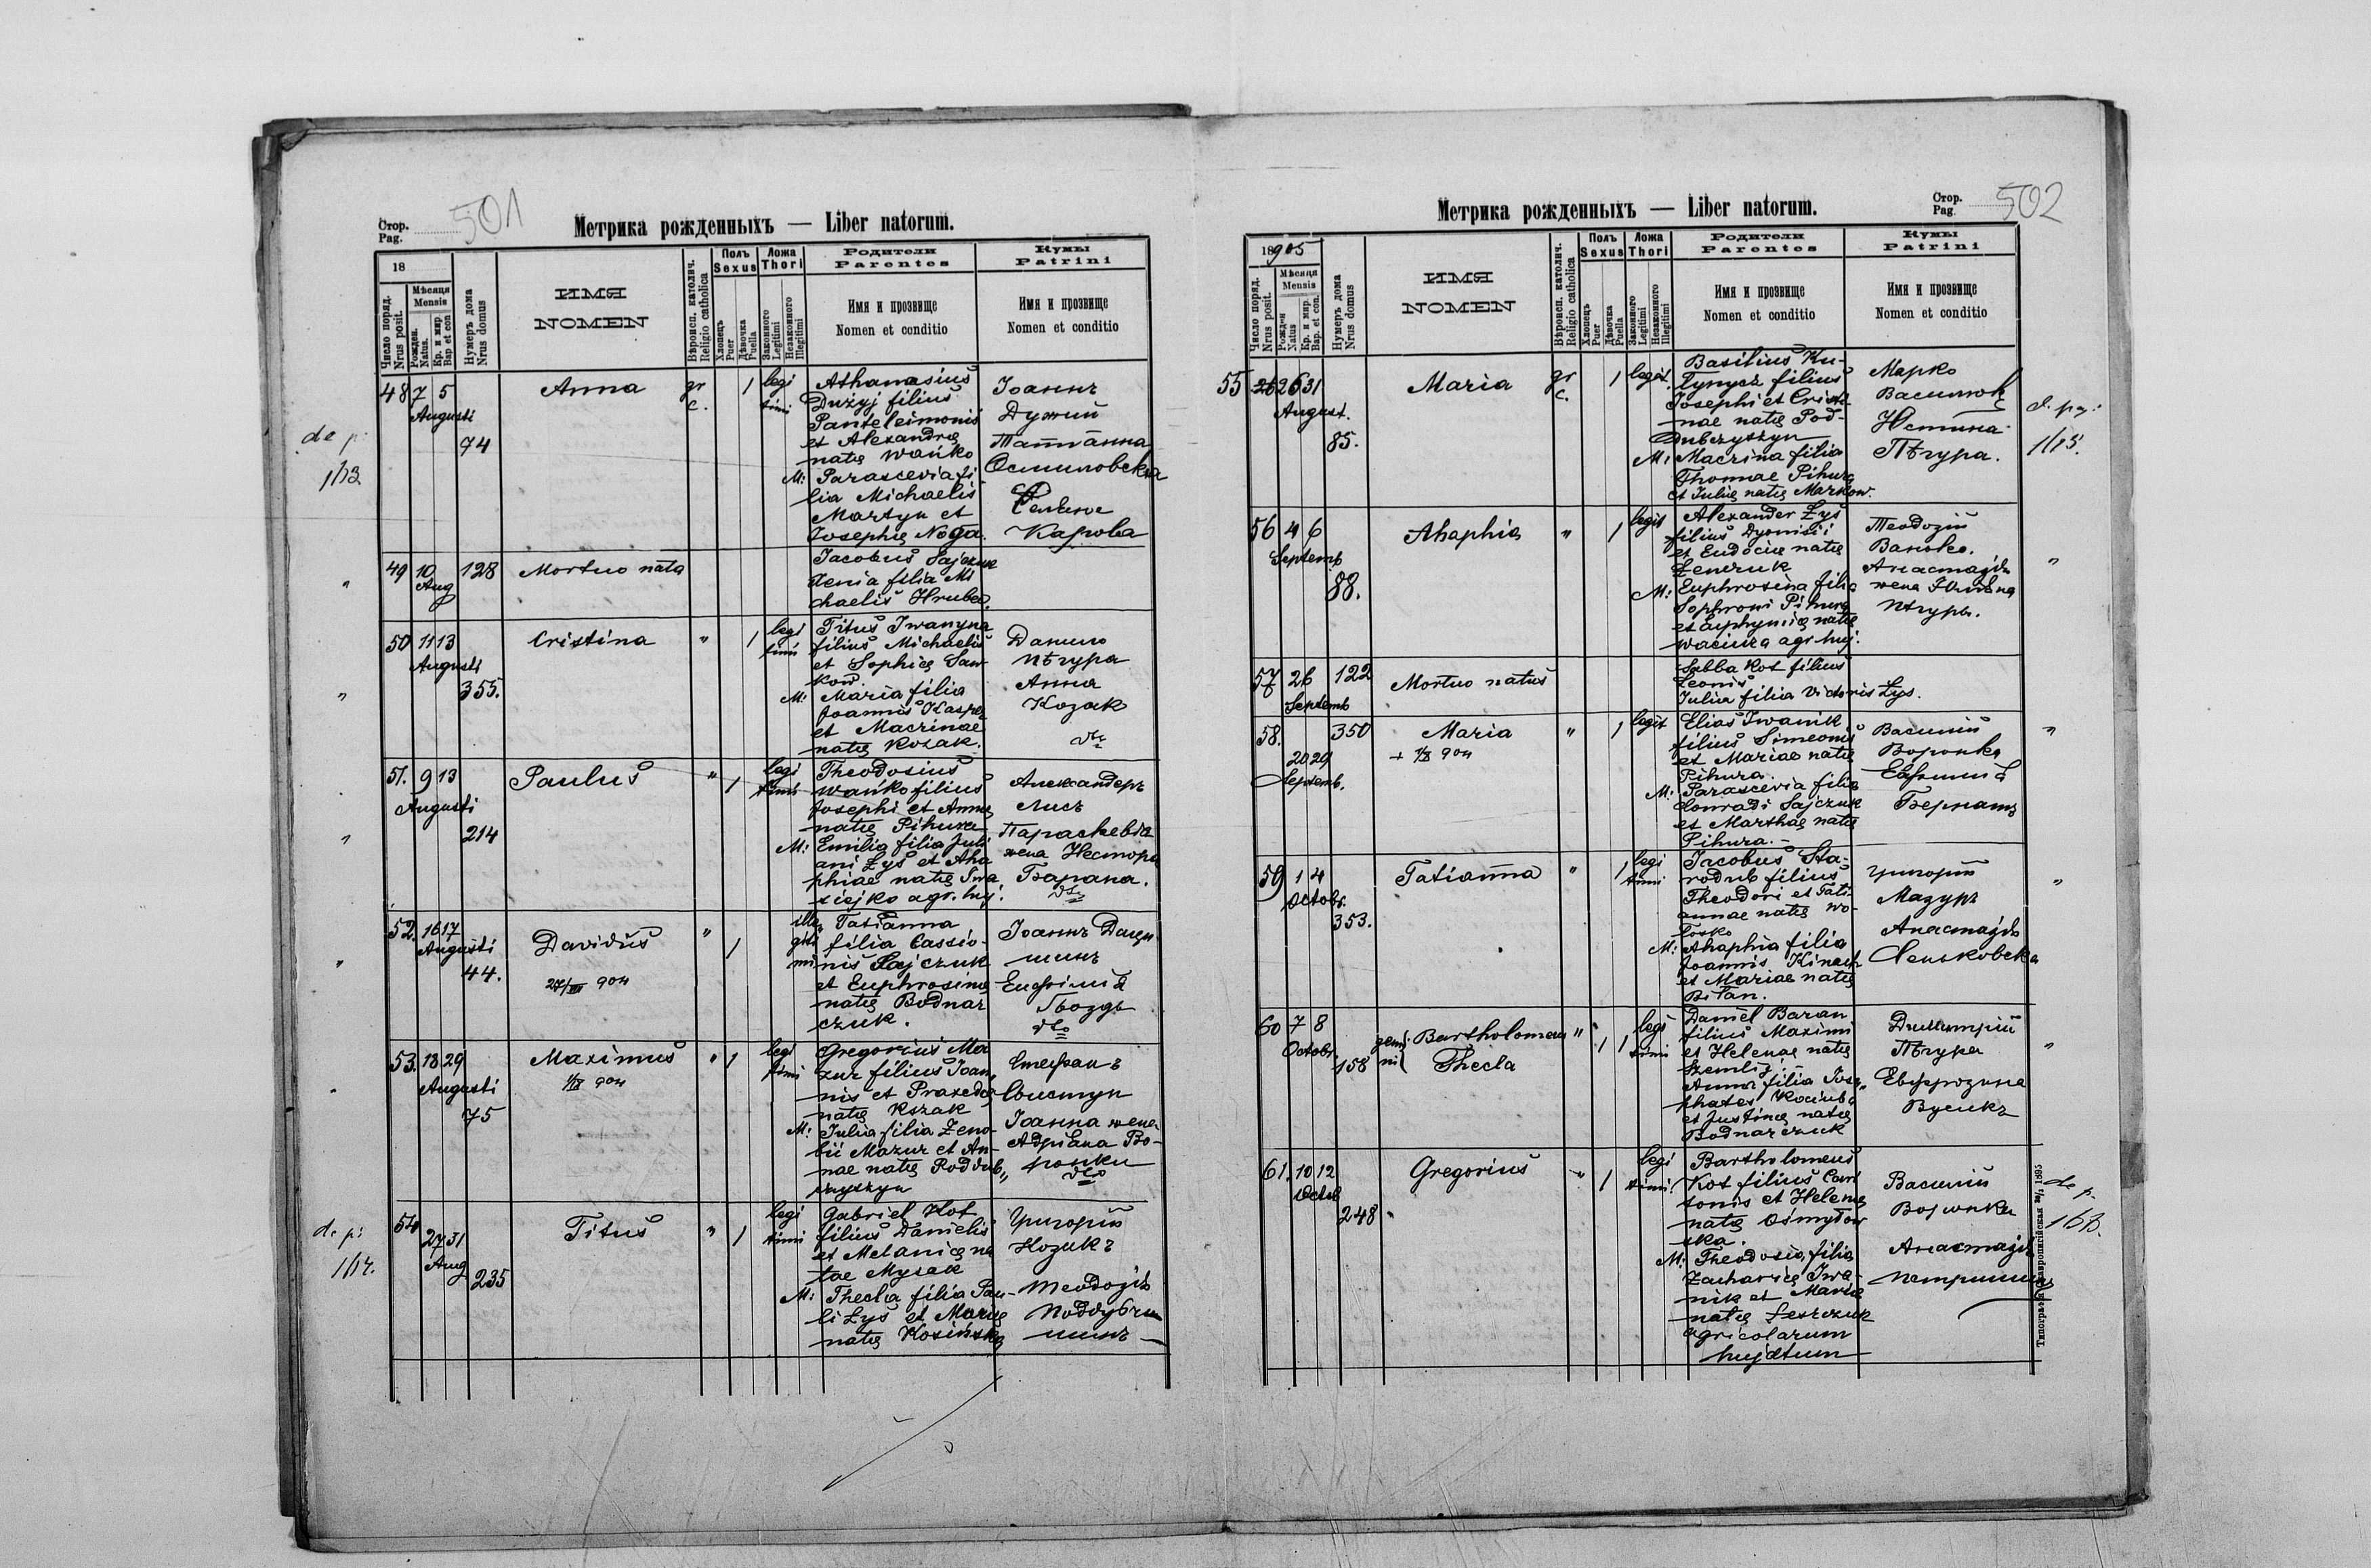 501
Стор.
Pag.
Метрика рожденныхъ — Liber natorum.
18
Число поряд.
Nrus posit.
Мѣсяця
Mensis
Рожден.
Natus.
Кр. и мир.
Bap et con
Нумеръ дома
Nrus domus
ИМЯ
NOMEN
Вѣроисп. католич.
Religio catholica
Полъ
Sexus
Хлопецъ
Puer
Дѣвочка
Puella
Ложа
Thori
Законного
Legitimi
Незаконного
Illegitimi
Родители
Parentes
Имя и прозвище
Nomen et conditio
Кумы
Patrini
Имя и прозвище
Nomen et conditio
de p:
48 7 5
Augusti
94
Anna
gr
c.
1
legi
timi
Athanasius
Dużyj filius
Panteleimonis
et Alexandrę
natę Wańko
M: Parascevia fi
lia Michaelis
Martyn et
Josephię Noga.
Іоаннъ
Дужий
Татіанна
49 10 128
Aug
Mortuo nata
Jacobus Sajczuk
Xenia filia Mi
chaelis Hrubec.
50 11 13
Augusti
355.
Cristina
" 1
legi
timi
Titus Iwanyna
filius Michaelis
et Sophię Saw
kow.
M: Maria filia
Joannis Kasper
et Macrinae
natę Kozak.
Данило
Пѣгура
Анна
Козак
51. 9 13
Augusti
214
Paulus
" 1
legi
timi
Theodosius
Wańko filius
Josephi et Annę
natę Pihura
M: Emilia filia Juli
ani Łyś et Aha
phiae natę
agr. huj.
Александеръ
Лисъ
Параскевіа
жена Нестора
Барана.
52. 16 17
Augusti
44.
Davidus
27/VIII 904
" 1
ille
giti
mi
Tatianna
filia Cassio-
nis Sajczuk
et Euphrosinę
natę Bodnar
czuk.
Іоаннъ
Гвоздь
53. 18 29
Augusti
75
Maximus
904
" 1
legi
timi
Gregorius Ma
zur filius Joan,
nis et Praxedę
natę Kozak
M: Julia filia Zeno-
bii Mazur et An-
nae natę Poddub„
czyszyn
Стефанъ
Свистун
Іоанна жена
Адріана Во-
ронки
de p:
1/14.
54
27 31
Aug
235
Titus
" 1
legi
timi
Gabriel Kot
filius Danielis
et Melanię na
tae Mysak
M: Thecla filia Pau-
li Łyś et Marię
natę Kosińska
Григорій
Козикъ
Теодозія
Поддубчи
шинъ
Метрика рожденныхъ — Liber natorum.
Стор.
Pag.
502
18905
Число поряд.
Nrus posit.
Мѣсяця
Mensis
Рожден
Natus
Кр. и мир.
Bap. et con.
Нумеръ дома
Nrus domus
ИМЯ
NOMEN
Вѣроисп. католич.
Religio catholica
Полъ
Sexus
Хлопецъ
Puer
Дѣвочка
Puella
Ложа
Thori
Законного
Legitimi
Незаконного
Illegitimi
Родители
Parentes
Имя и прозвище
Nomen et conditio
Кумы
Patrini
Имя и прозвище
Nomen et conditio
55 26 31
August.
85.
Maria
gr
c.
1
legit.
Basilius Ku-
tynycz filius
Josephi et Cristi-
nae natę Pod-
dubczyszyn
M: Macrina filia
Thomae Pihura
et Julię natę Markow.
Марко
Юстина
Пѣгура.
56 4 6
Septemb
88.
Ahaphia
" 1
legit
Alexander Łyś
filius Dyonisii
et Eudocię natę
M: Euphrosina filia
Sophroni Pihura
et Euphymię natę
Waciura agr. huj.
Теодозій
Ванько.
Анастазія
жена Юліана
Пѣгуры.
57 26 122
Septemb
Mortuo natus
Sabba Kot filius
Leonis
Julia filia Victoris Łyś.
58. 350
20 29
Septemb.
Maria
904
" 1
legit
Elias Iwanik
filius Simeonis
et Mariae natę
Pihura.
M: Parascevia filia
Conradi Sajczuk
et Marthae natę
Pihura.-
Василій
Воронка
Евфимія
Бернатъ
59 1 4
Octobr.
353.
Tatianna
" 1
legi
timi
Jacobus Sta-
rodub filius
Theodori et Tati-
annae natę Wo-
losko
M: Ahaphia filia
Joannis Kinach
et Mariae natę
Biłan.
Григорій
Мазуръ
Анастазія
Сеньковска
60 7 8
Octobr.
158
gemi
ni
Bartholomeus
Thecla
" 1 1
legi
timi
Daniel Baran
filius Maximi
et Helenae natę
Szemlij.-
Anna filia Josa„
phates Kociuba
et Justinę natę
Bodnarczuk
Димитрій
Пѣгура
Евфрозина
Вусикъ
61. 10 12
Octob
248
Gregorius
" 1
legi
timi.
Bartholomeus
Kot filius Cari
tonis et Helenę
natę Ośmyłow
ska.
M: Theodosia, filia
Zacharię Iwa-
nik et Marię
natę Leszczuk
agricolarum
hujatum
Василій
Воронка
Анастазія
Петришин
de p.
Типографія Ставропигійская 1895